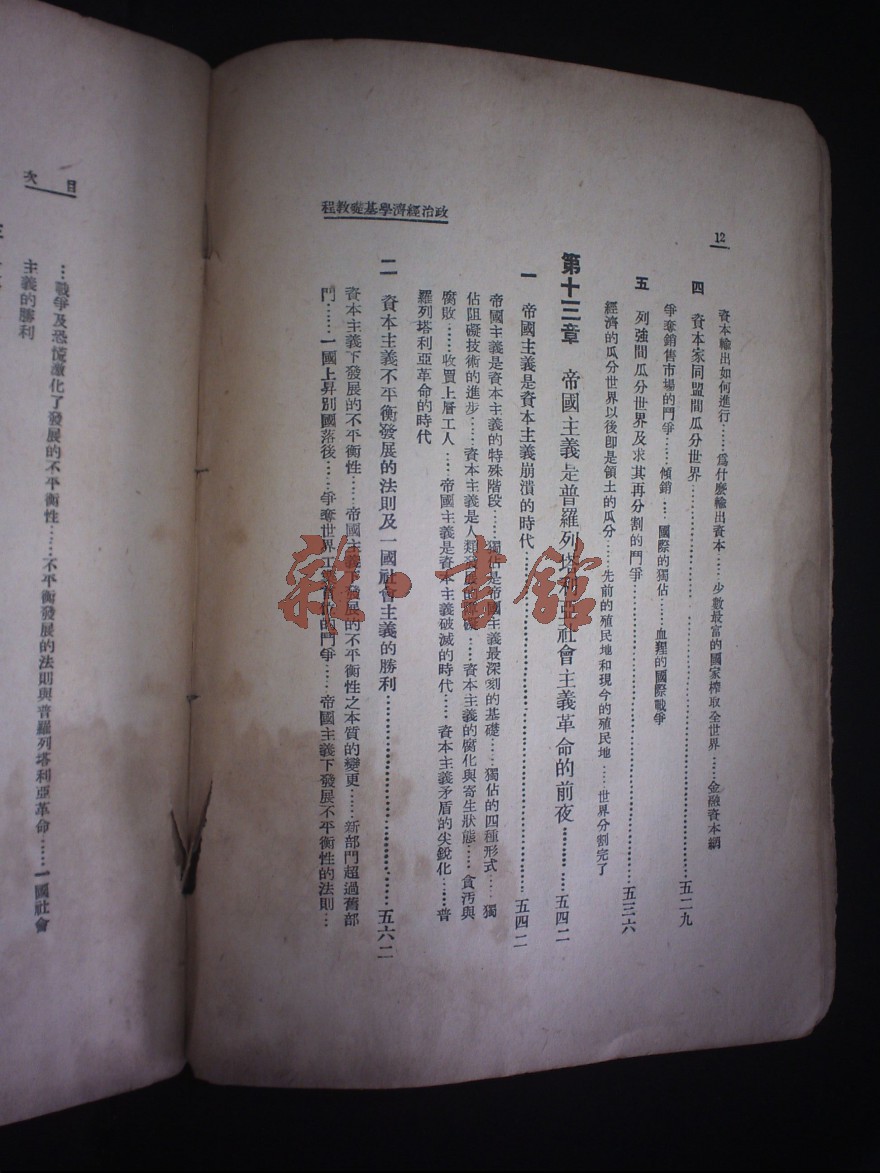 12
資本輸出如何進行……爲什麽輸出資本……少數最富的國家榨取全世界……金融資本網
四 資本家同盟間瓜分世界……五二九
爭奪銷售市場的鬥爭……傾銷……國際的獨佔……血腥的國際戰爭
五 列強間瓜分世界及求其再分割的鬥爭……五三六
經濟的瓜分世界以後卽是領土的瓜分……先前的殖民地和現今的殖民地……世界分割完了
第十三章 帝國主義是普羅列塔利亞社會主義革命的前夜……五四二
一 帝國主義是資本主義崩潰的時代……五四二
帝國主義是資本主義的特殊階段……獨佔是帝國主義最深刻的基礎……獨佔的四種形式……獨
佔阻礙技術的進步……資本主義是人類發展的障礙……資本主義的腐化與寄生狀態……貪汚與
腐敗……收買上層工人……帝國主義是資本主義破滅的時代……資本主義矛盾的尖銳化……普
羅列塔利亞革命的時代
二 資本主義不平衡發展的法則及一國社會主義的勝利……五六二
資本主義下發展的不平衡性……帝國主義下發展的不平衡性之本質的變更……新部門超過舊部
門……一國上昇別國落後……爭奪世界工業首位的鬥爭……帝國主義下發展不平衡性的法則…
政治經濟學基礎教程
目次
…戰爭及恐慌激化了發展的不平衡性……不平衡發展的法則與普羅列塔利亞革命……一國社會
主義的勝利
雜·書館